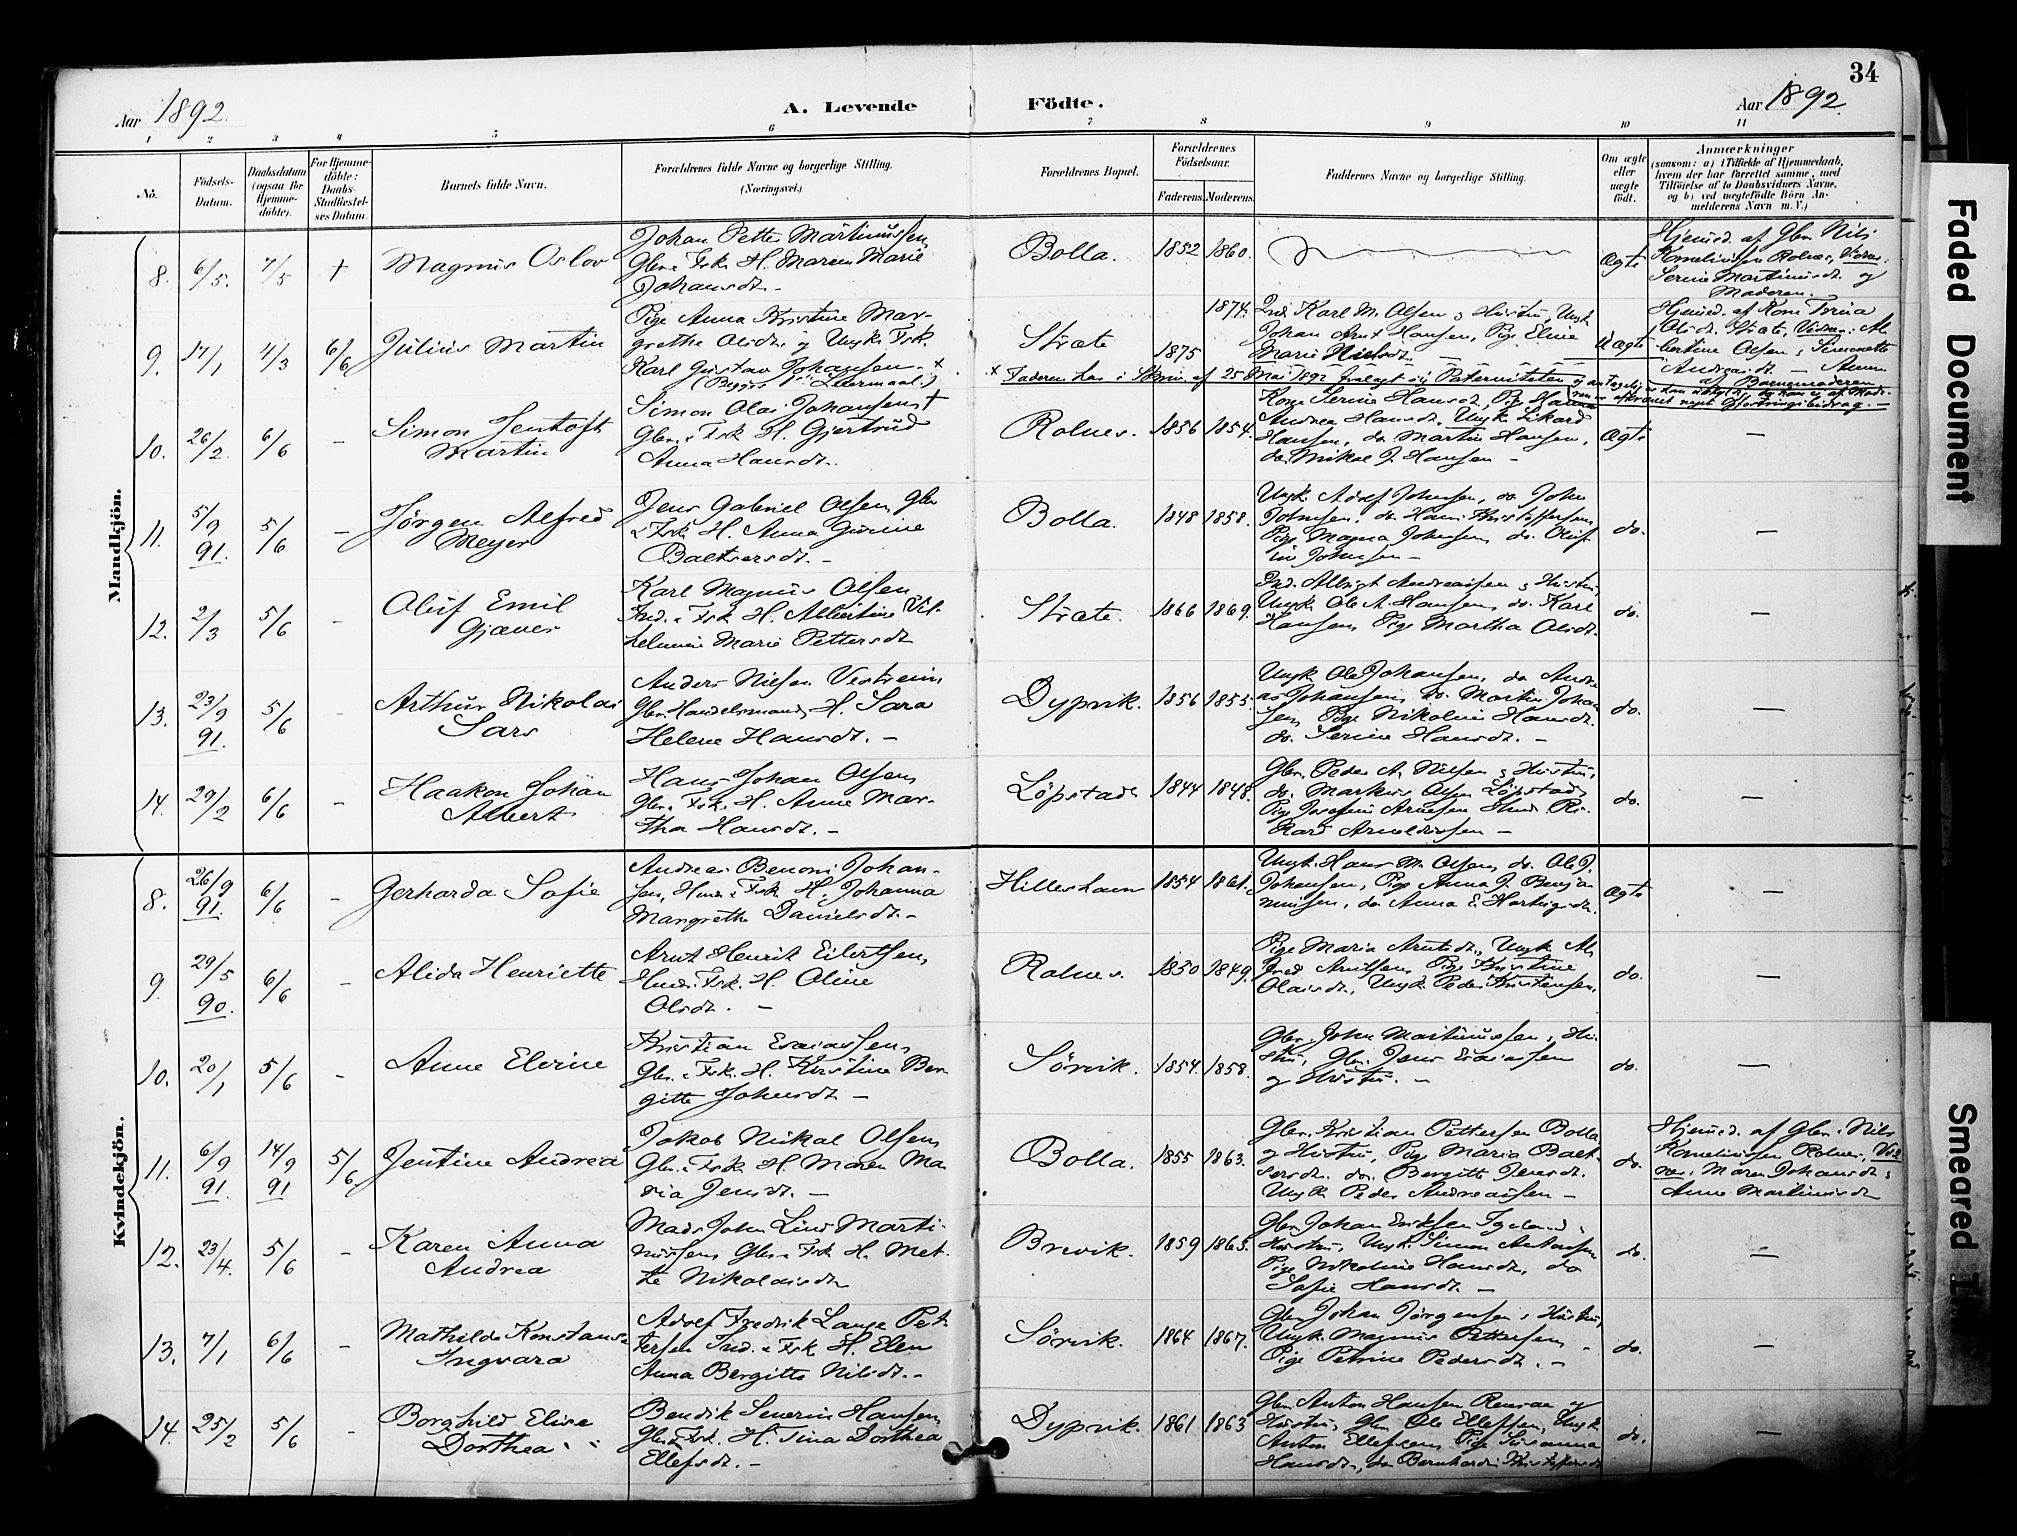 34
Aar 1892.
A. Levende Födte.
Aar 1892.
1 2 3 4 5 6 7 8 9 10 11
No.
Födsels-Datum.
Daabsdatum (ogsaa for Hjemme-döbte).
For Hjemme-döbte: Daabs-Stadfæstel-ses Datum.
Barnets fulde Navn.
Forældrenes fulde Navne og borgerlige Stilling.
(Næringsvei.)
Forældrenes Bopæl.
Forældrenes Födselsaar.
Faderens. Moderens.
Faddernes Navne og borgerlige Stilling.
Om ægte eller uægte födt.
Anmærkninger
(saasom: a) i Tilfælde af Hjemmedaab,
hvem der har forrettet samme, med
Tilföielse af to Daabsvidners Navne,
og b) ved uægtefödte Börn An-
melderens Navn m. V.)
Mandkjön.
8. 6/5. 7/5 † Magnus Oslov
Johan Petter Martinussen,
Gbr. & Fsk. H. Maren Marie
Johansdt. -
Bolla. 1852 1860. Ægte
Hjemmed. af Gbr. Nils
Kornelinssen Rolnes, Vidner:
Serine Martinusdt og
Moderen.
9. 17/1 4/3 6/6 Julius Martin
Pige Anna Kristine Mar-
grethe Olsdt. og Ungk. Fsk.
Karl Gustav Johansen - x
Stræte 1875 1874.
Ind. Karl M. Olsen & Hustru, Ungk.
Johan Arnt Hansen, Pige Eline
Marie Nielsdt. -
Uægte
Hjemmed. af Kone Trina
Olsdt. Stræte, Vidner: Al-
bertine Olsen & Simonette
Andreasdt. - Anm.
af Barnemoderen
x Faderen har i Skriv. af 25 Mai 1892 fralagt sig Paterniteten
10. 26/2. 6/6 - Simon Jentoft
Martin
Simon Olai Johansen †
Gbr. & Fsk. H. Gjertrud
Anna Hansdt.
Rolnes. 1856 1854.
Kone Serine Hansdt, Pige Hanna
Andrea Hansdt, Ungk. Rikard
Hansen, do Martin Hansen,
do Mikal J. Hansen -
Ægte -
11. 5/9 91. 5/6 - Jørgen Alfred
Meyer
Jens Gabriel Olsen, Gbr
& Fsk. H. Anna Gurine
Baltsersdt. -
Bolla. 1848 1858.
Ungk. Adolf Johnsen, do John
Johnsen, do Hans Kristoffersen,
Pige Magna Johnsen, do. Oluf-
ine Johnsen -
do. -
12. 2/3 5/6 - Oluf Emil
Gjæver
Karl Magnus Olsen
Ind. & Fsk H. Albertine Vil-
helmine Marie Pettersdt
Stræte. 1866 1869.
Ind. Albrigt Andreassen & Hustru,
Ungk. Ole A. Hansen, do. Karl
Hansen, Pige Martha Olsdt.
do. -
13. 23/9 91. 5/6 - Arthur Nikolai
Sars
Anders Nilsen Vestreim
Gbr. Handelsmand, H. Sara
Helene Hansdt. -
Dypvik. 1856 1855.
Ungk. Ole Johansen, do Andre-
as Johansen, do. Martin Johan-
sen, Pige Nikoline Hansdt.
do. Serine Hansdt. -
do. -
14. 29/2 6/6 - Haakon Johan
Albert
Hans Johan Olsen,
Gbr. & Fsk. H. Anne Mar-
tha Hansdt. -
Löpstad 1844 1848.
Gbr. Peder A. Nilsen & Hustru,
do. Markus Olsen Löpstad,
Pige Josefine Arnesen Ri-
kard Arnoldussen -
do. -
Kvindekjön.
8. 26/9 91. 6/6 - Gerharda Sofie
Andreas Benoni Johan-
sen, Hmd. & Fsk H. Johanna
Margrethe Danielsdt. -
Hilleshamn 1854 1861.
Ungk. Hans M. Olsen, do. Ole J.
Johansen, Pige Anna J. Benja-
minsen, do Anna E. Hartvigsdt.
Ægte -
9. 29/5 90. 6/6 - Alida Henriette
Arnt Henrik Eilertsen,
Hmd. & Fsk. H. Oline
Olsdt. -
Rolnes. 1850 1849.
Pige Maria Arntsdt., Ungk. Al-
fred Arntsen, Pige Kristine
Olaisdt., Ungk. Peder Kristensen.
do. -
10. 20/1 5/6 - Anne Elvine
Kristian Esaiassen,
Gbr. & Fsk. H. Kristine Ber-
gitte Johnsdt -
Sörvik. 1854. 1858.
Gbr. John Martinussen & Hu-
stru, Gbr. Jens Esaiassen
og Hustru. -
do. -
11. 6/9 91. 14/9 91 5/6 Jentine Andrea
Jakob Mikal Olsen,
Gbr. & Fsk H. Maren Ma-
ria Jensdt. -
Bolla. 1855 1863.
Gbr. Kristian Pettersen Bolla
og Hustru, Pige Maria Balt-
sersdt. do. Bergitte Jensdt.
Ungk. Peder Andreassen -
do.
Hjemmed. af Gbr. Nils
Kornelinssen Rolnes, Vid-
ner: Maren Johansdt &
Anne Martinusdt
12. 23/4. 5/6 - Karen Anna
Andrea
Mads John Lind Marti-
nussen, Gbr. & Fsk H. Met-
te Nikolaisdt
Brevik. 1859 1863.
Gbr. Johan Eriksen &
Hustru, Ungk. Simon Antonsen
Pige Nikoline Hansdt, do
Sofie Hansdt. -
do. -
13. 7/1 6/6 - Mathilde Konstanse
Ingvara
Adolf Fredrik Lange Pet-
tersen Ind. & Fsk H. Elen
Anna Bergitte Nilsdt. -
Sörvik. 1864 1867.
Gbr. Johan Jørgensen & Hustru,
Ungk. Magnus Pettersen,
Pige Petrine Pedersdt. -
do. -
14. 25/2 5/6 - Borghild Elise
Dorthea
Bendik Severin Hansen,
Gbr. & Fsk. H. Sina Dorthea
Ellefsdt. -
Dypvik. 1861 1863
Gbr. Anton Hansen Rensaa og
Hustru, Gbr. Ole Ellefsen, Ungk.
Anton Ellefsen, Pige Susanna
Hansdt, do Bernhardine Kristoffersdt
do. -
Faded Document
Smeared